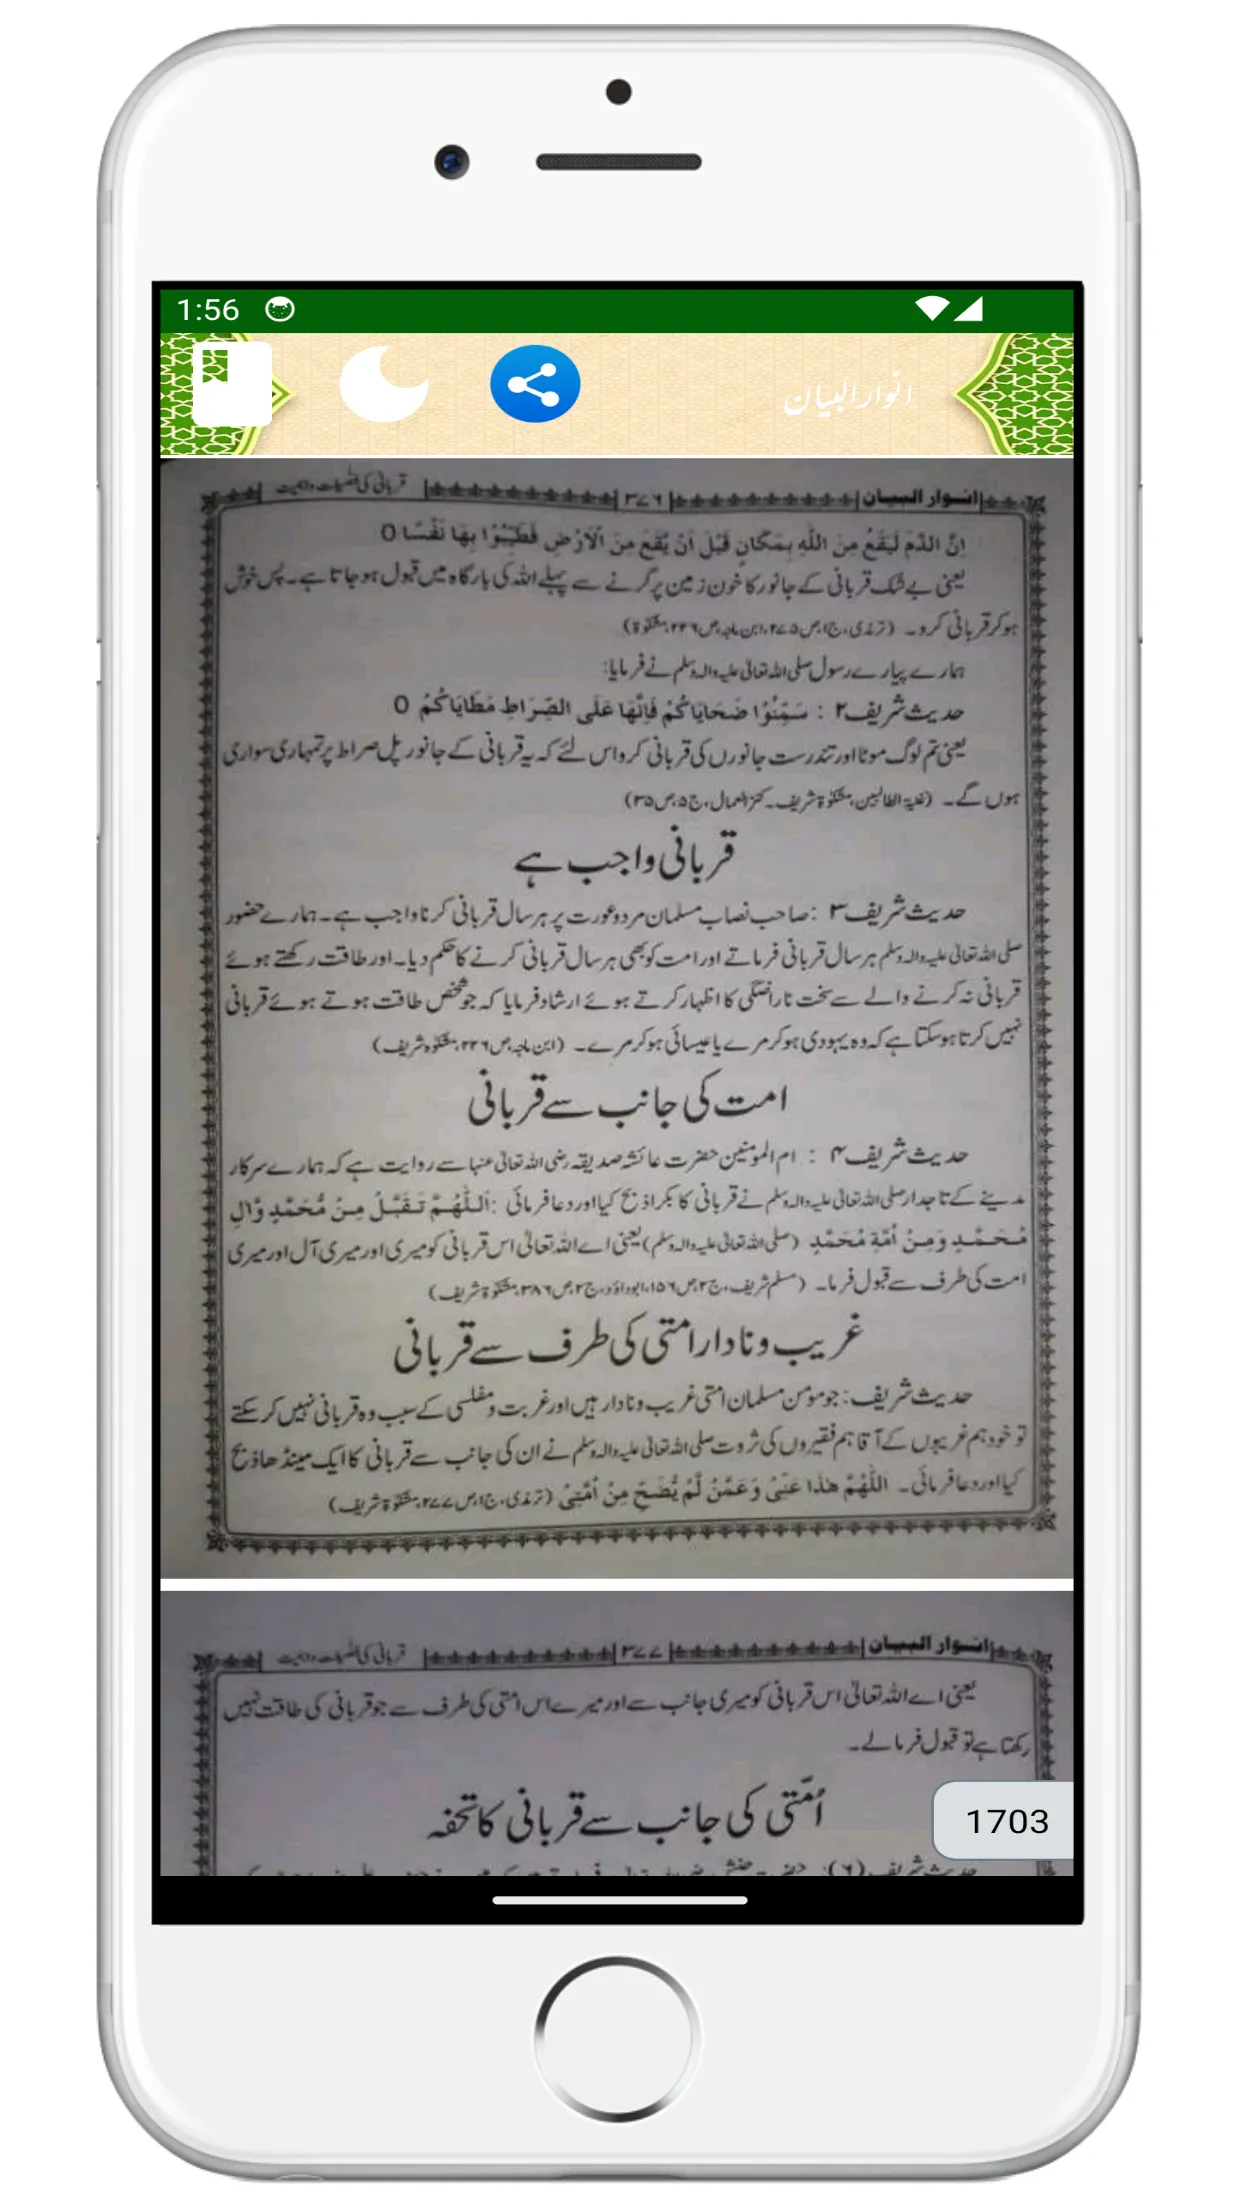 1:56
انوار البیان
انوار البیان ۳۷۶ قربانی کی فضیلت و
اِنَّ الدَّمَ لَيَقَعُ مِنَ اللّٰهِ بِمَكَانٍ قَبْلَ اَنْ يَّقَعَ مِنَ الْاَرْضِ فَطَيِّبُوْا بِهَا نَفْسًا O
یعنی بے شک قربانی کے جانور کا خون زمین پر گرنے سے پہلے اللہ کی بارگاہ میں قبول ہو جاتا ہے۔ پس خوش
ہو کر قربانی کرو۔ (ترمذی، ج۱، ص۲۷۵، ابن ماجہ، ص۲۲۶، مشکوٰۃ)
ہمارے پیارے رسول صلی اللہ تعالیٰ علیہ والہ وسلم نے فرمایا:
حدیث شریف۲ : سَمِّنُوْا ضَحَايَاكُمْ فَاِنَّهَا عَلَى الصِّرَاطِ مَطَايَاكُمْ O
یعنی تم لوگ موٹا اور تندرست جانوروں کی قربانی کرو اس لئے کہ یہ قربانی کے جانور پل صراط پر تمہاری سواری
ہوں گے۔ (غنیۃ الطالبین، مشکوٰۃ شریف۔ کنز العمال، ج۵، ص۳۵)
قربانی واجب ہے
حدیث شریف۳ : صاحب نصاب مسلمان مرد و عورت پر ہر سال قربانی کرنا واجب ہے۔ ہمارے حضور
صلی اللہ تعالیٰ علیہ والہ وسلم ہر سال قربانی فرماتے اور امت کو بھی ہر سال قربانی کرنے کا حکم دیا۔ اور طاقت رکھتے ہوئے
قربانی نہ کرنے والے سے سخت ناراضگی کا اظہار کرتے ہوئے ارشاد فرمایا کہ جو شخص طاقت ہوتے ہوئے قربانی
نہیں کرتا ہو سکتا ہے کہ وہ یہودی ہو کر مرے یا عیسائی ہو کر مرے۔ (ابن ماجہ، ص۲۲۶، مشکوٰۃ شریف)
امت کی جانب سے قربانی
حدیث شریف۴ : ام المومنین حضرت عائشہ صدیقہ رضی اللہ تعالیٰ عنہا سے روایت ہے کہ ہمارے سرکار
مدینے کے تاجدار صلی اللہ تعالیٰ علیہ والہ وسلم نے قربانی کا بکرا ذبح کیا اور دعا فرمائی : اَللّٰهُمَّ تَقَبَّلْ مِنْ مُّحَمَّدٍ وَّاٰلِ
مُحَمَّدٍ وَمِنْ اُمَّةِ مُحَمَّدٍ (صلی اللہ تعالیٰ علیہ والہ وسلم) یعنی اے اللہ تعالیٰ اس قربانی کو میری اور میری آل اور میری
امت کی طرف سے قبول فرما۔ (مسلم شریف، ج۲، ص۱۵۶، ابوداؤد، ج۲، ص۳۸۶، مشکوٰۃ شریف)
غریب و نادار امتی کی طرف سے قربانی
حدیث شریف : جو مومن مسلمان امتی غریب و نادار ہیں اور غربت و مفلسی کے سبب وہ قربانی نہیں کر سکتے
تو خود ہم غریبوں کے آقا ہم فقیروں کی ثروت صلی اللہ تعالیٰ علیہ والہ وسلم نے ان کی جانب سے قربانی کا ایک مینڈھا ذبح
کیا اور دعا فرمائی۔ اَللّٰهُمَّ هٰذَا عَنِّىْ وَعَمَّنْ لَّمْ يُضَحِّ مِنْ اُمَّتِىْ (ترمذی، ج۱، ص۲۷۷، مشکوٰۃ شریف)
انوار البیان ۳۷۷ قربانی کی فضیلت و
یعنی اے اللہ تعالیٰ اس قربانی کو میری جانب سے اور میرے اس امتی کی طرف سے جو قربانی کی طاقت نہیں
رکھتا ہے تو قبول فرمالے۔
اُمّتی کی جانب سے قربانی کا تحفہ
1703
حدیث شریف (۶) :